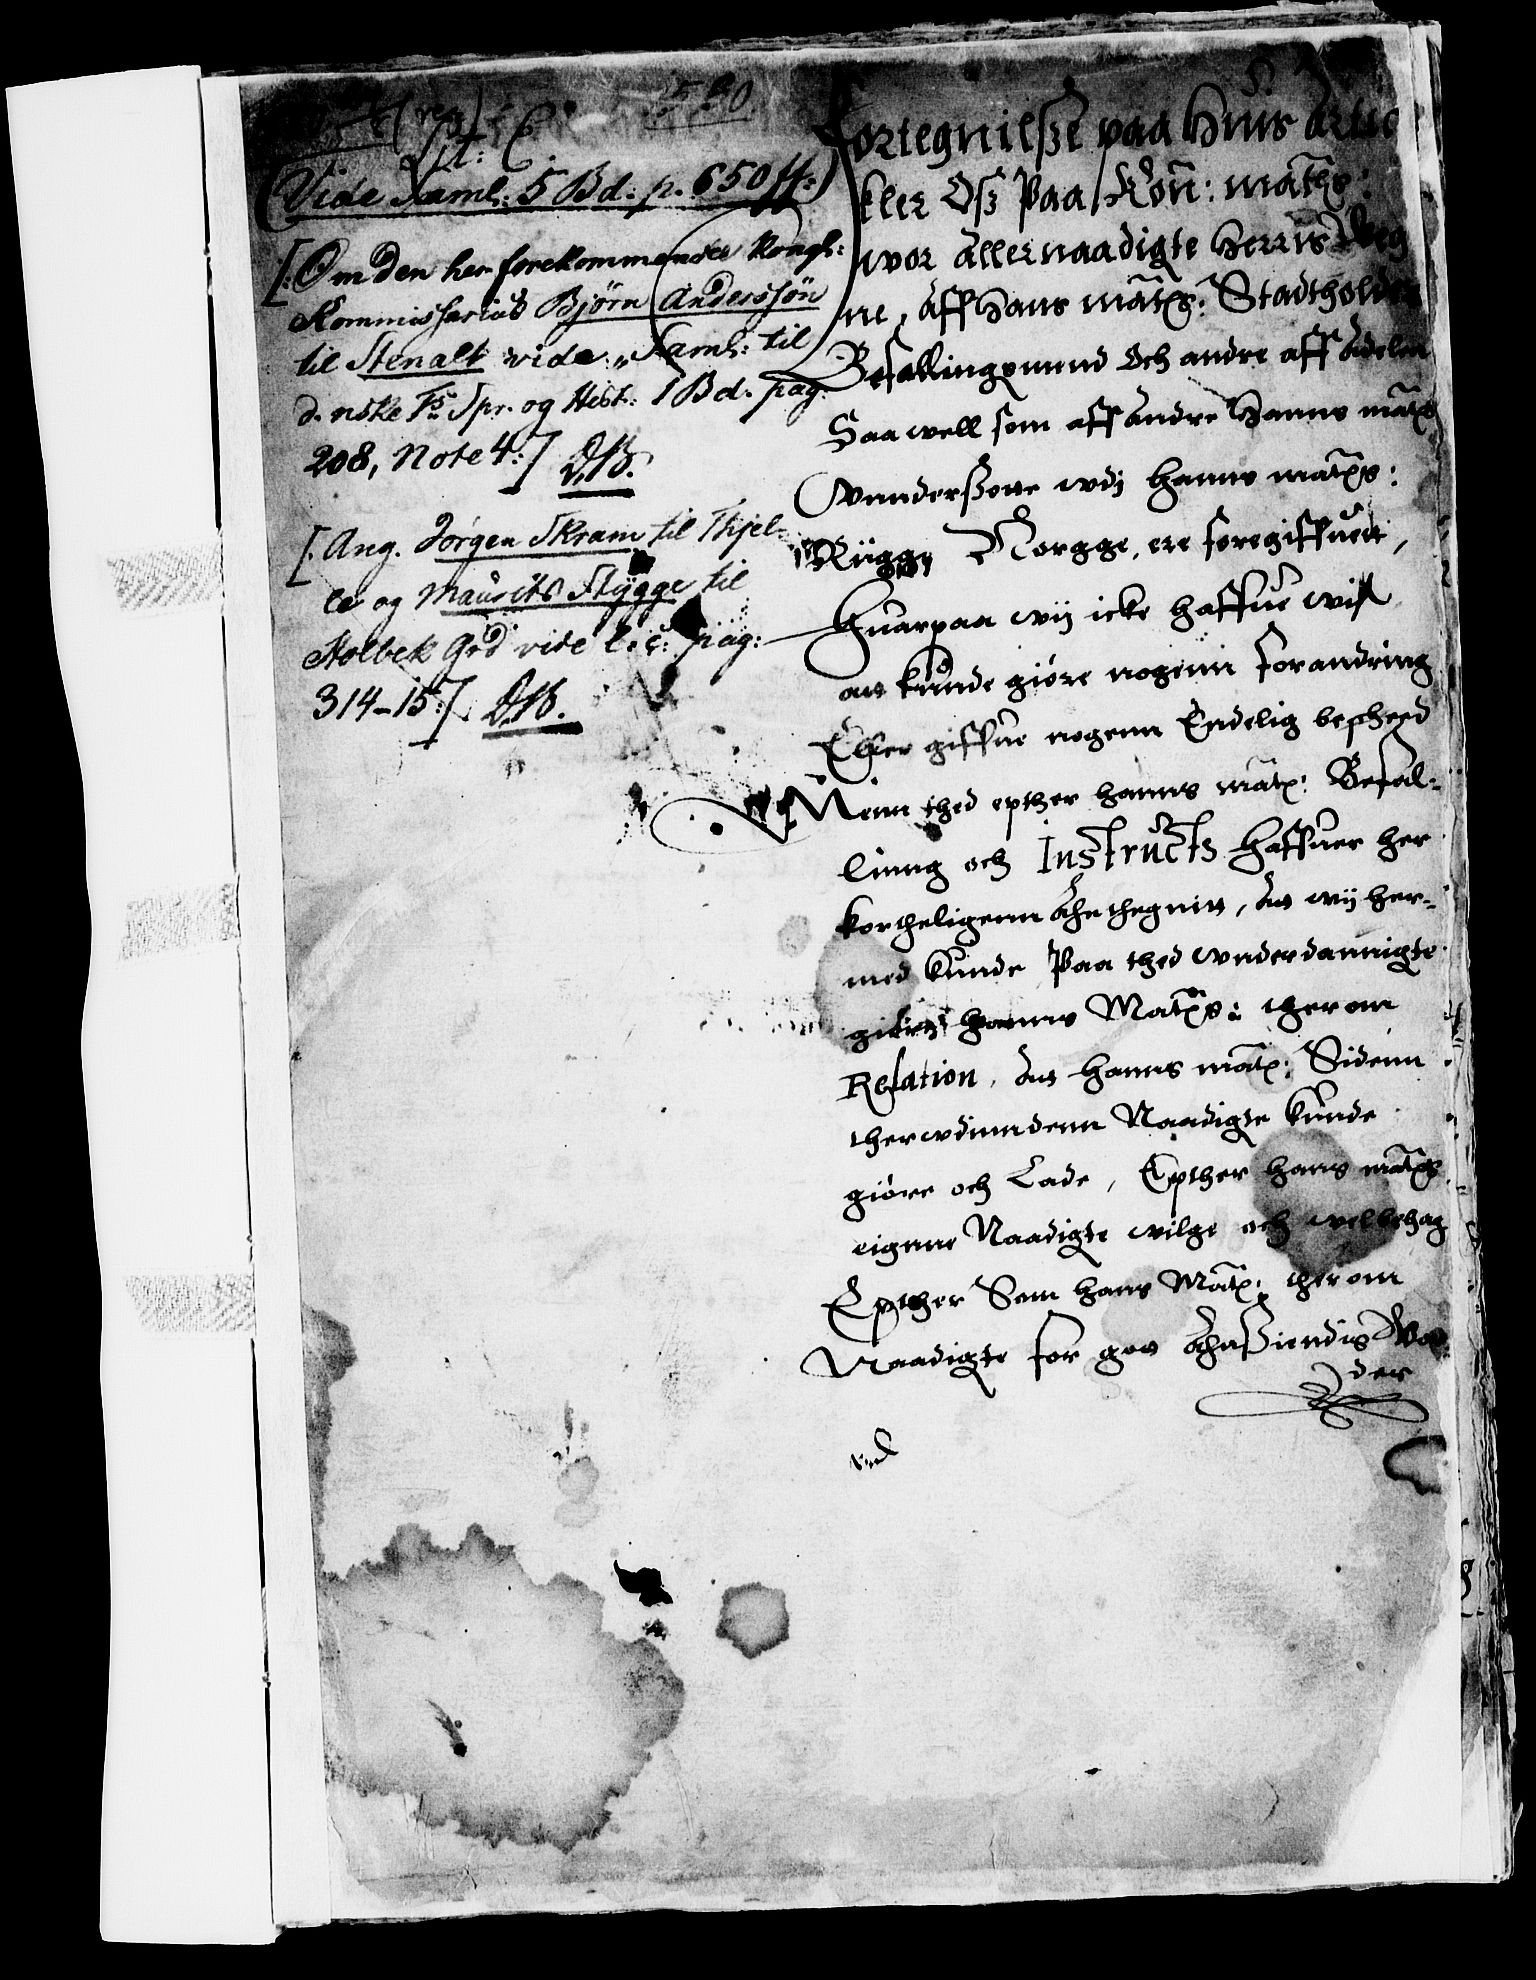 Lit: C.
(Vide Saml: 5 Bd: p. 650 ff:)
[: Om den her forekommende Kongl:
Kommissarius Bjørn Anderssøn
til Stenalt vide: „Saml: til
d. nske Fs Spr. og Hist: 1 Bd. pag:
208, Note 4:] D.B.
[: Ang. Jörgen Skram til Thjel-
le og Maurits Stygge til
Holbek Grd vide l. c: pag:
314-15:] D.B.
1580
Fortegnilsse paa Huis Artic
kler Oss Paa Kon: matts:
wor Allernaadigte Herris Veg
ne, Aff Hans matts: Stadtholder
Befallingzmend Och andre aff Adelen
Saa well som aff Andre Hanns matts
Vnnderssotte wdj hanns matts:
Riigge Norgge, ere foregiffuet,
Huarpaa wij icke haffue wist
att kunde giøre nogenn forandring
Eller giffue nogenn Endelig beskeed
Menn thed epther hanns matt: Befal-
linng och Instructs haffuer her
kortheligenn Anthegnitt, Att wij her-
med kunde Paa thed wnderdannigte
giøre hanns Matts: ther om
Relation, Att hanns matt: Sidenn
ther wdinndenn Naadigte kunde
giøre och Lade, Epther hans matts
eignne Naadigte wilge och welbehag
Epther Som hans Matt: ther om
Naadigte for gott Anseendis Vor
der